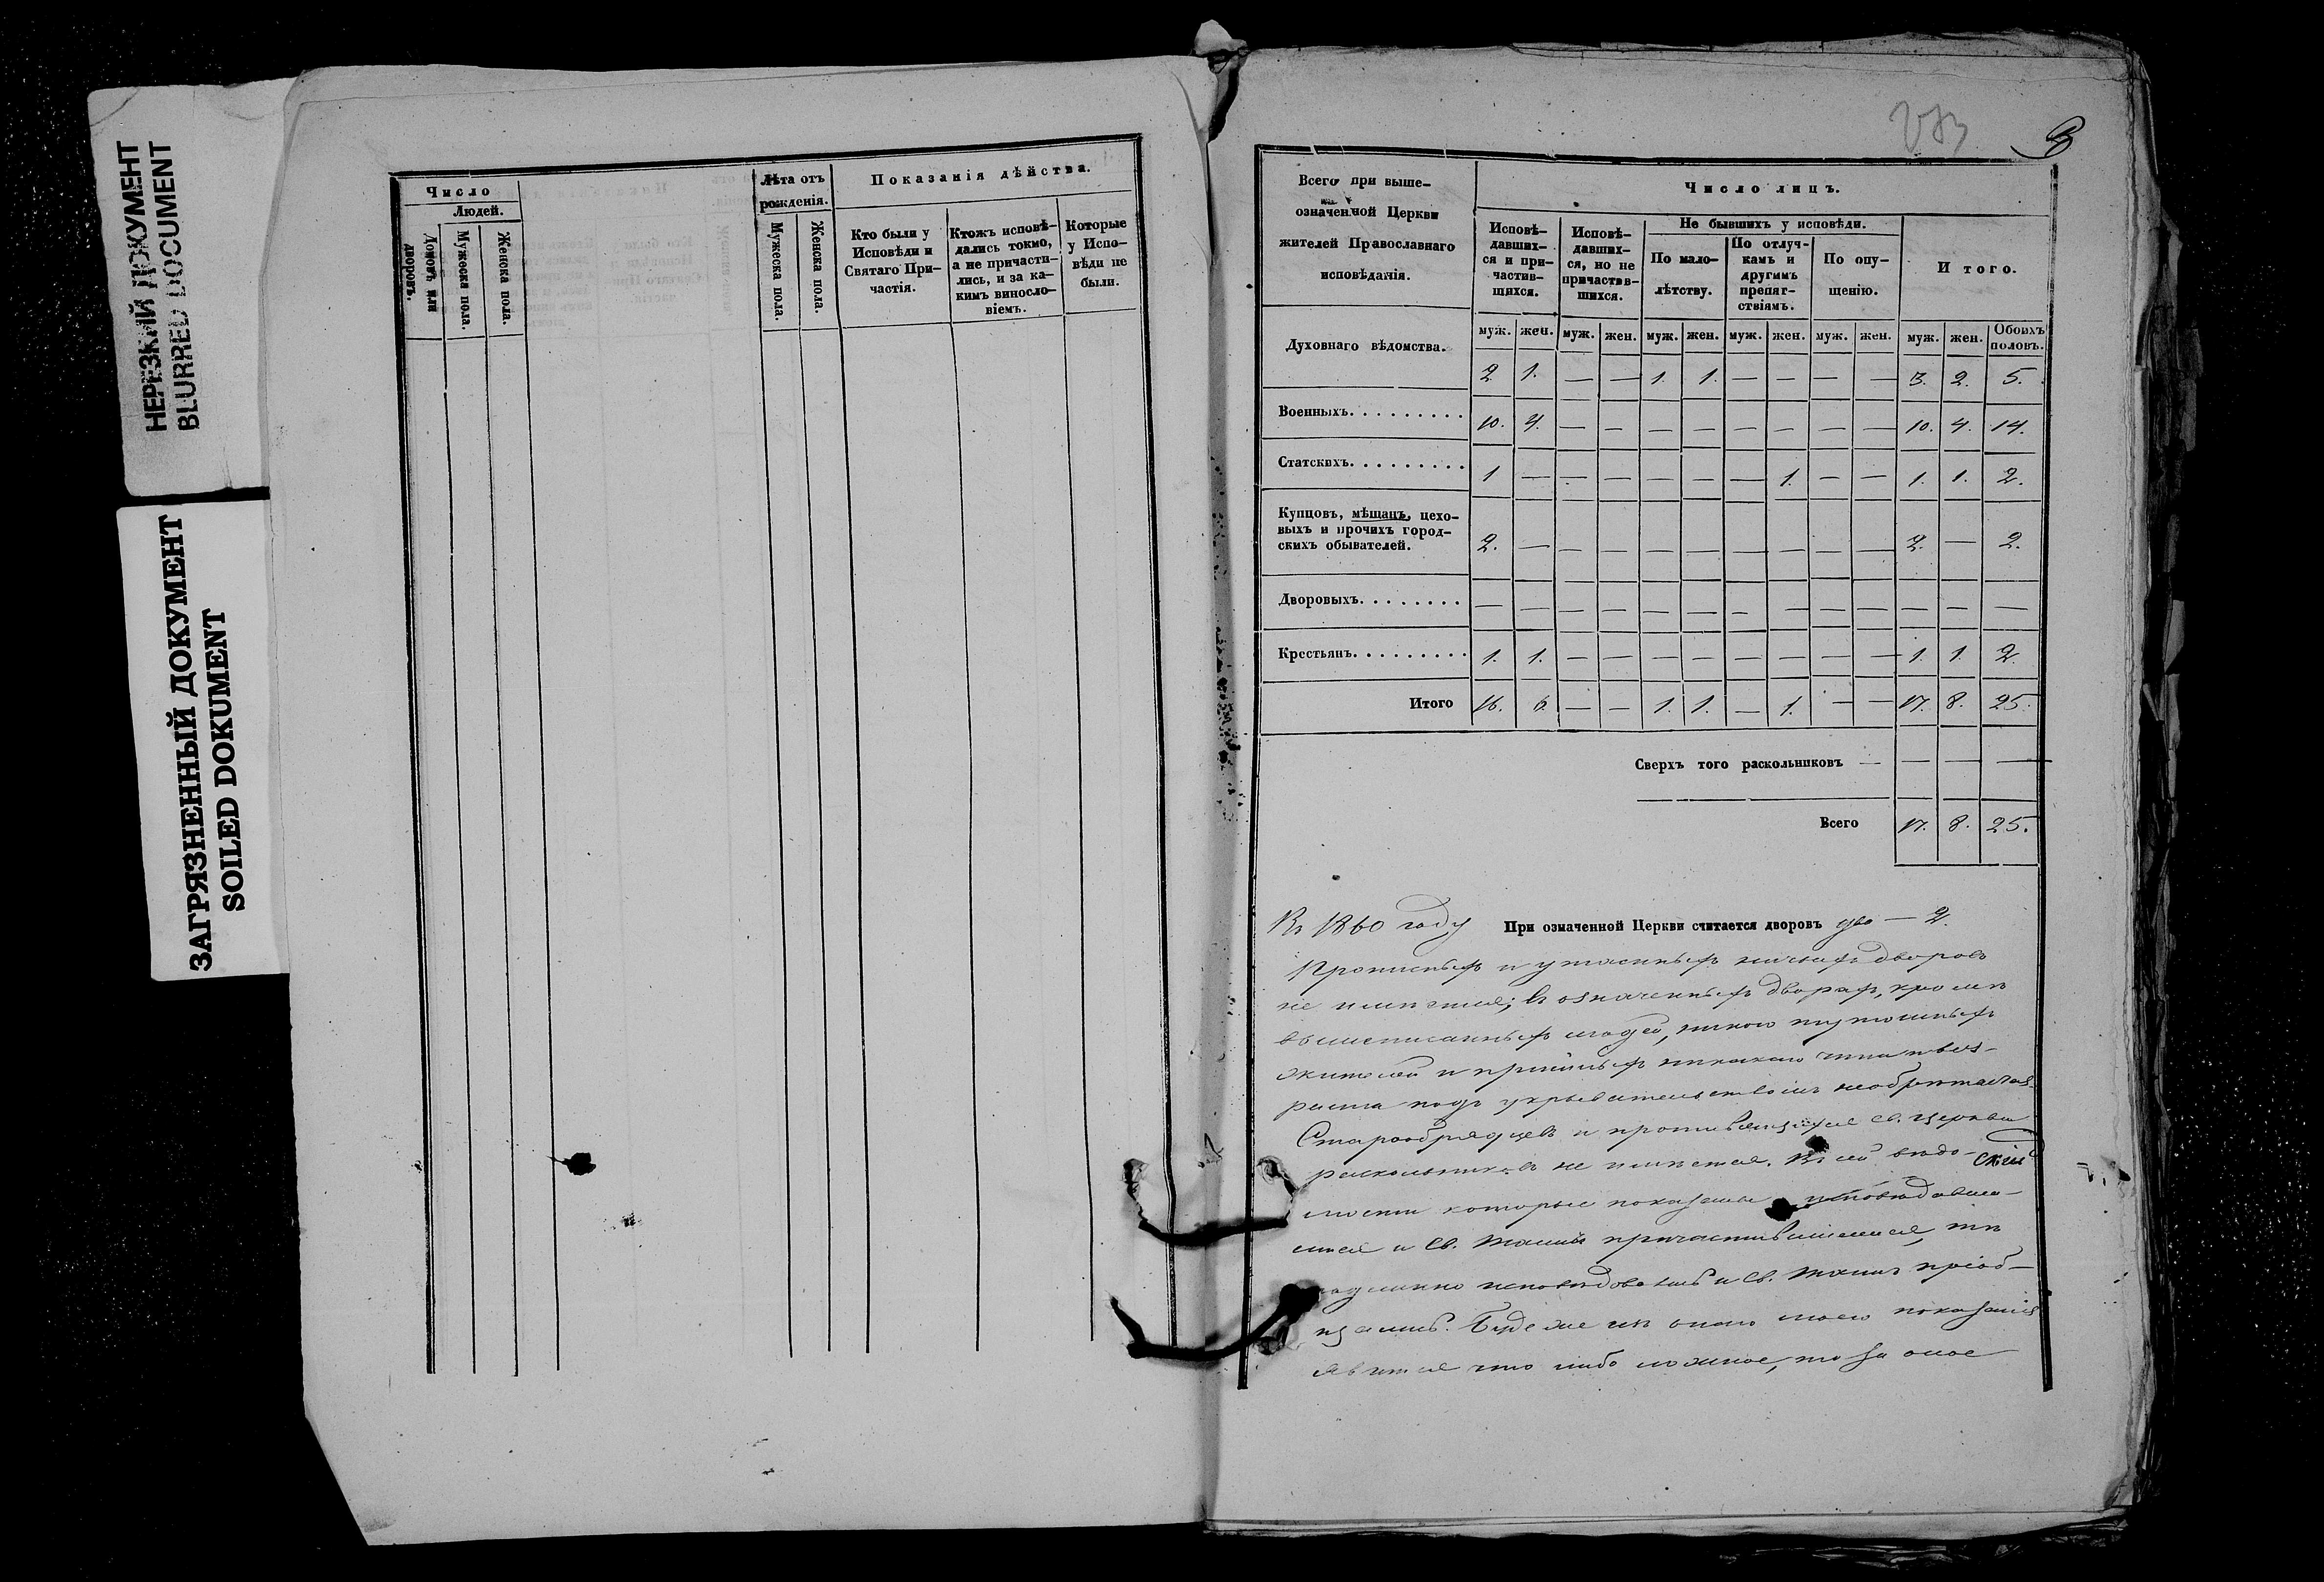 НЕРЕЗКИЙ ДОКУМЕНТ
BLURRED DOCUMENT
ЗАГРЯЗНЕННЫЙ ДОКУМЕНТ
SOILED DOKUMENT
Число
Людей.
Домовъ или дворовъ.
Мужеска пола.
Женска пола.
Лѣта отъ
рожденія.
Мужеска пола.
Женска пола.
Показанія дѣйства.
Кто были у
Исповѣди и
Святаго При-
частія.
Ктожъ исповѣ-
дались токмо,
а не причасти-
лись, и за ка-
кимъ винosло-
віемъ.
Которые
у Испо-
вѣди не
были.
Всего при выше-
означенной Церкви
жителей Православнаго
исповѣданія.
Число лицъ.
Исповѣ-
давших-
ся и при-
частив-
шихся.
Исповѣ-
давших-
ся, но не
причастив-
шихся.
Не бывшихъ у исповѣди.
По мало-
лѣтству.
По отлуч-
камъ и
другимъ
препят-
ствіямъ.
По опу-
щенію.
Итого.
муж. жен. муж. жен. муж. жен. муж. жен. муж. жен. муж. жен. Обоихъ половъ.
Духовнаго вѣдомства. 2 1. — — 1. 1. — — — — 3. 2. 5.
Военныхъ. 10. 4. — — — — — — — — 10. 4. 14.
Статскихъ. 1 — — — — — — 1. — — 1. 1. 2.
Купцовъ, мѣщанъ, цехо-
выхъ и прочихъ город-
скихъ обывателей. 2. — — — — — — — — — 2. — 2.
Дворовыхъ. — — — — — — — — — — — — —
Крестьянъ. 1. 1. — — — — — — — — 1. 1. 2.
Итого 16. 6. — — 1. 1. — 1. — — 17. 8. 25.
Сверхъ того раскольниковъ — — — —
Всего 17. 8. 25.
Въ 1860 году При означенной Церкви считается дворовъ два — 2.
Прописныхъ и утаенныхъ дворовъ
не имѣется; въ означенныхъ дворахъ, кромѣ
вышеписанныхъ людей, никого тутошныхъ
жителей и никакого чина и воз-
раста подъ укрывательствомъ необрѣтается.
Старообрядцевъ и св. церкви
раскольниковъ не имѣется. Въ сей вѣдо-
мости которые показаны исповѣдавши-
мися и Св. Таинъ причастившимися, тѣ
исповѣдовались и Св. Таинъ пріоб-
щались. Буде же въ моего показанія
явится что либо ложное, то за оное